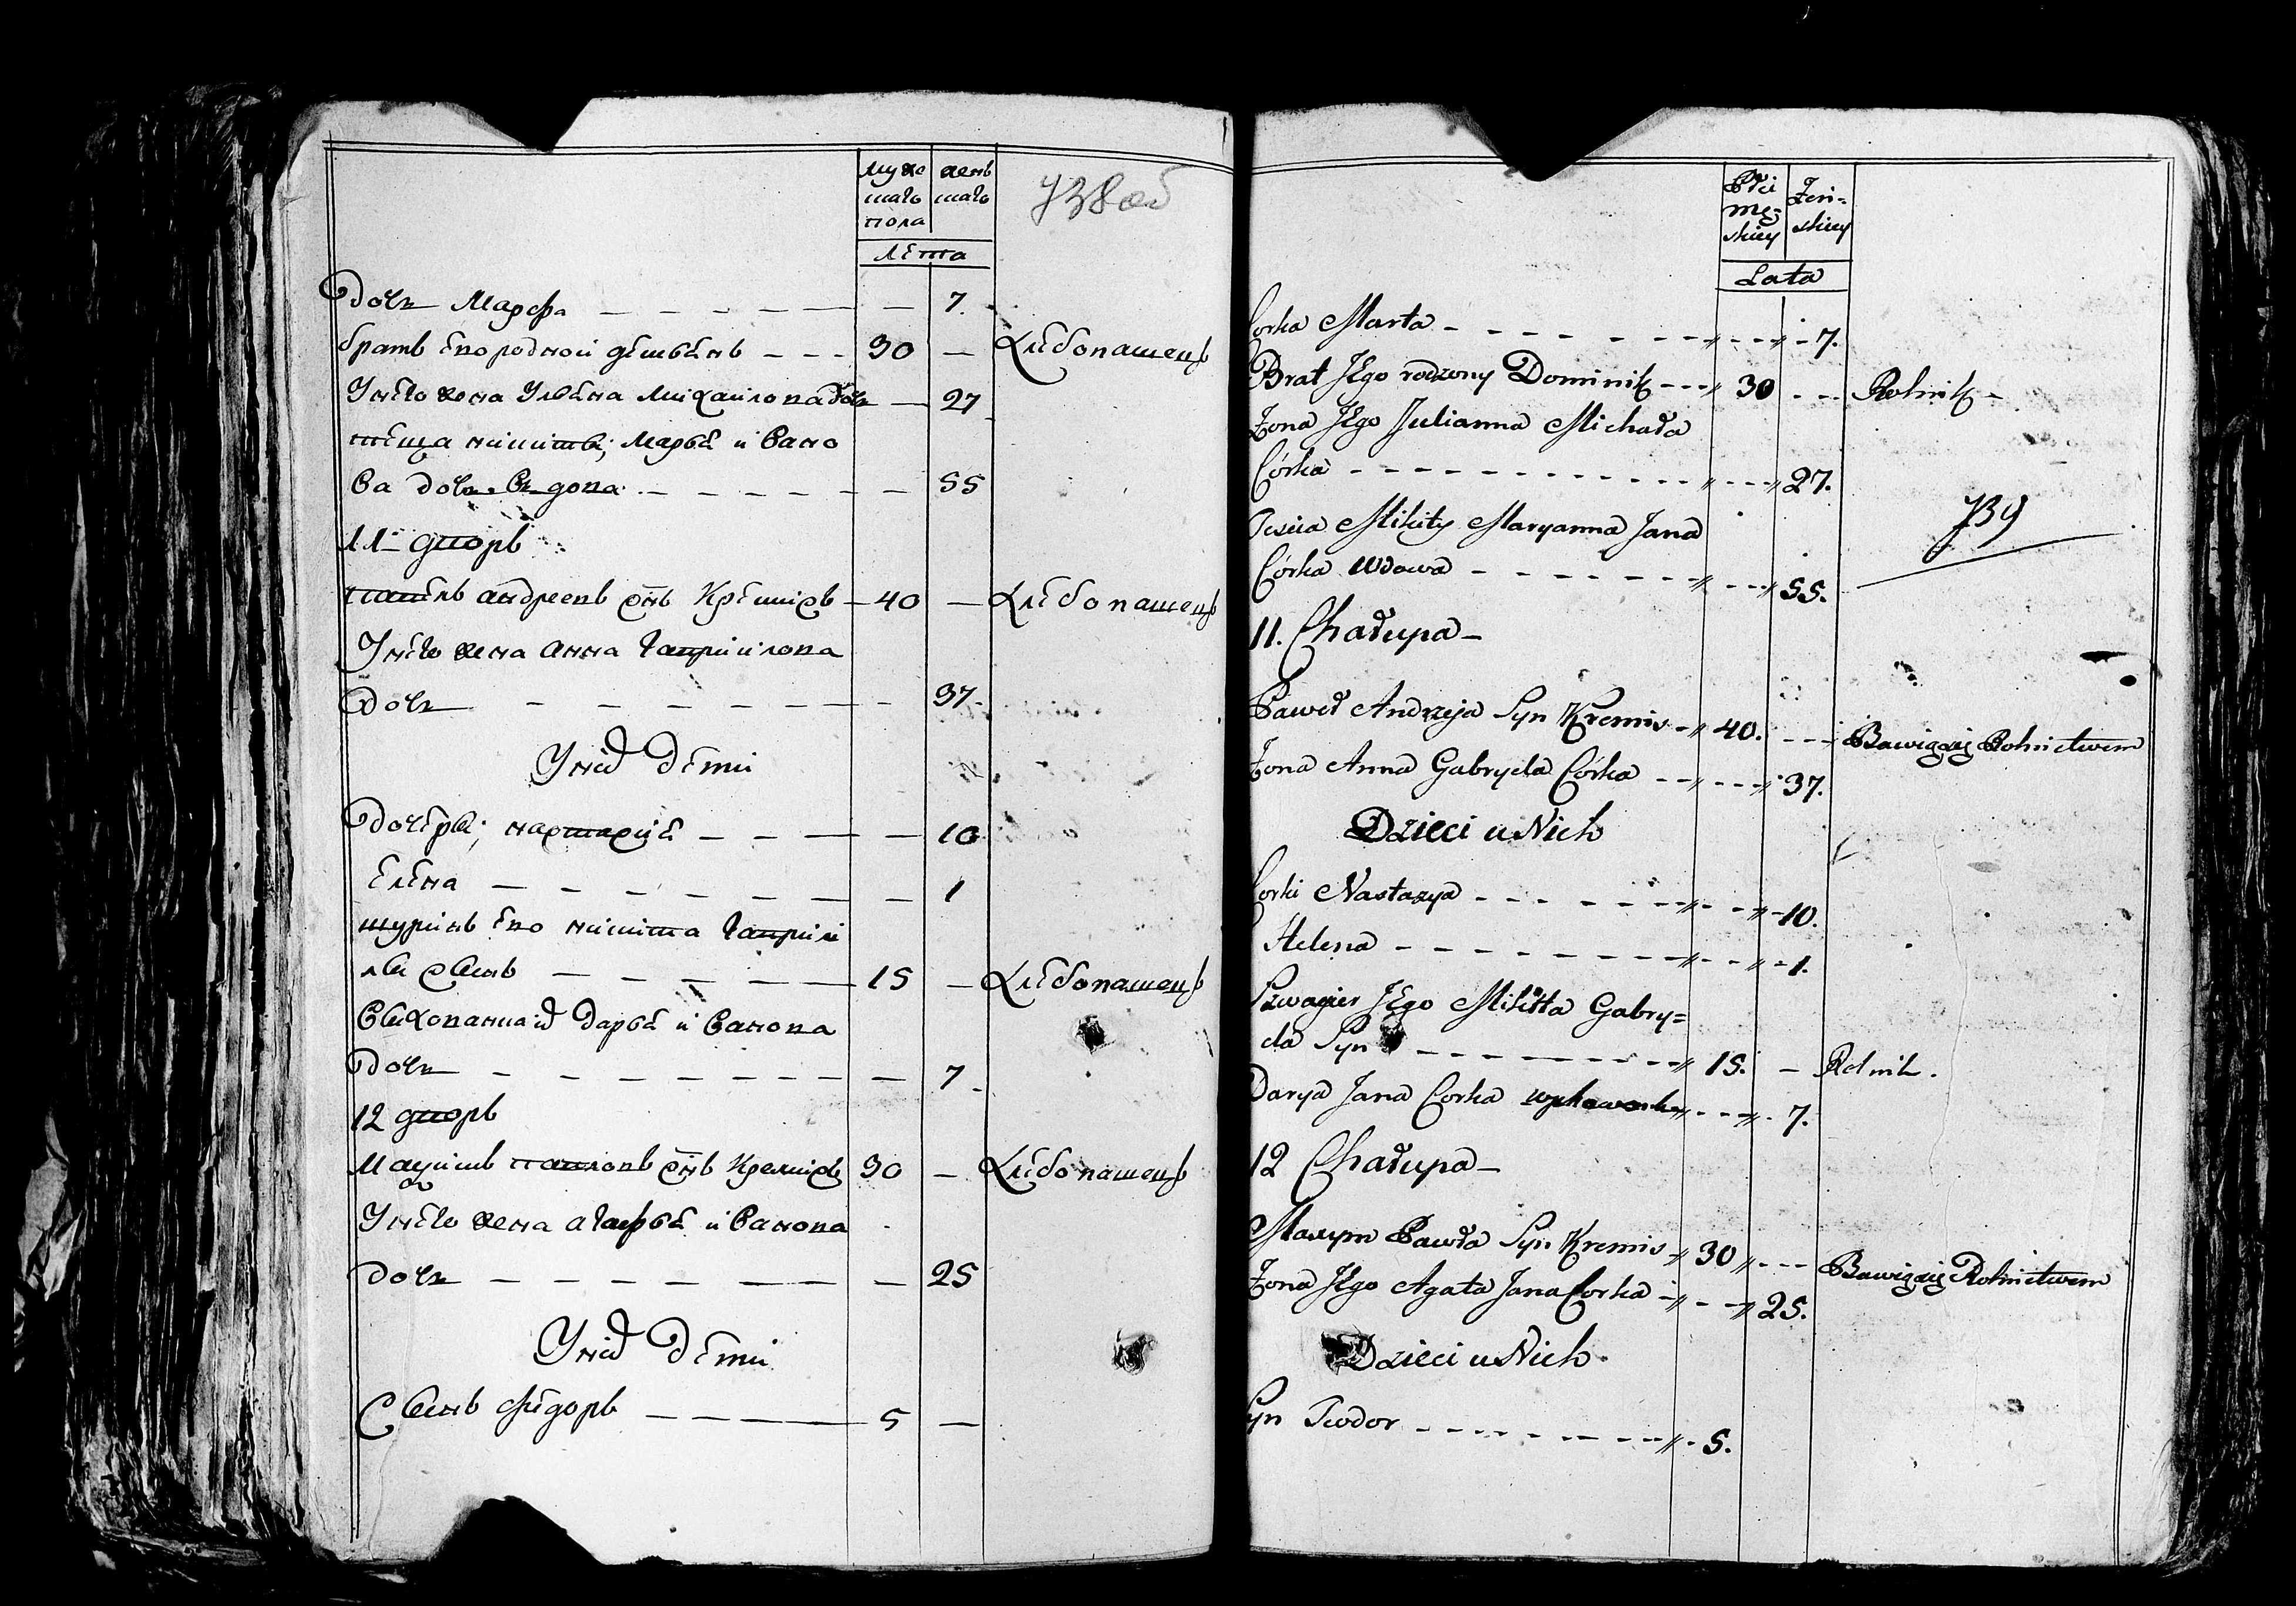 мужескаго пола
женскаго
738 об
лета
Дочь Марфа — 7.
братъ его родной демьянъ — 30 — хлебопашецъ
У него жена Ульяна михайлова дочь — 27
теща никиты, марья ива́но
ва дочь вдова — 55
11 дворъ
павелъ андреевъ снъ Кремисъ — 40 — хлебопашецъ
У него жена анна гавриилова
Дочь — 37
У них дети
Дочеры, настасия — 10
елена — 1
шуринъ его никита гаврии
лы сынъ — 15 — хлебопашецъ
выхованка их дарья иванова
Дочь — 7
12 дворъ
Мацимъ павловъ снъ Кремисъ 30 — хлебопашецъ
У него жена агафья иванова
дочь — 25
У них дети
Сынъ фидоръ — 5 —
Płci mę- skiey
Żeń- skiey
Lata
Corka Marta — 7.
Brat Jego rodzony Dominik — 30 — Rolnik
Żona Jego Julianna Michała
Córka — 27.
739
Teścia Mikity Maryanna Jana
Córka Wdowa — 55.
11. Chałupa —
Paweł Andrzeja Syn Kremis — 40. — Bawiąsię Rolnictwem
Żona Anna Gabryela Córka — 37.
Dzieci u Nich
Corki Nastazya — 10.
Helena — 1.
Szwagier Jego Mikitta Gabry=
ela Syn — 15. — Rolnik.
Darya Jana Corka wychowanka — 7.
12 Chałupa —
Maxym Pawła Syn Kremis — 30 — Bawiąsię Rolnictwem
Żona Jego Agata Jana Corka — 25.
Dzieci u Nich
Syn Teodor — 5.